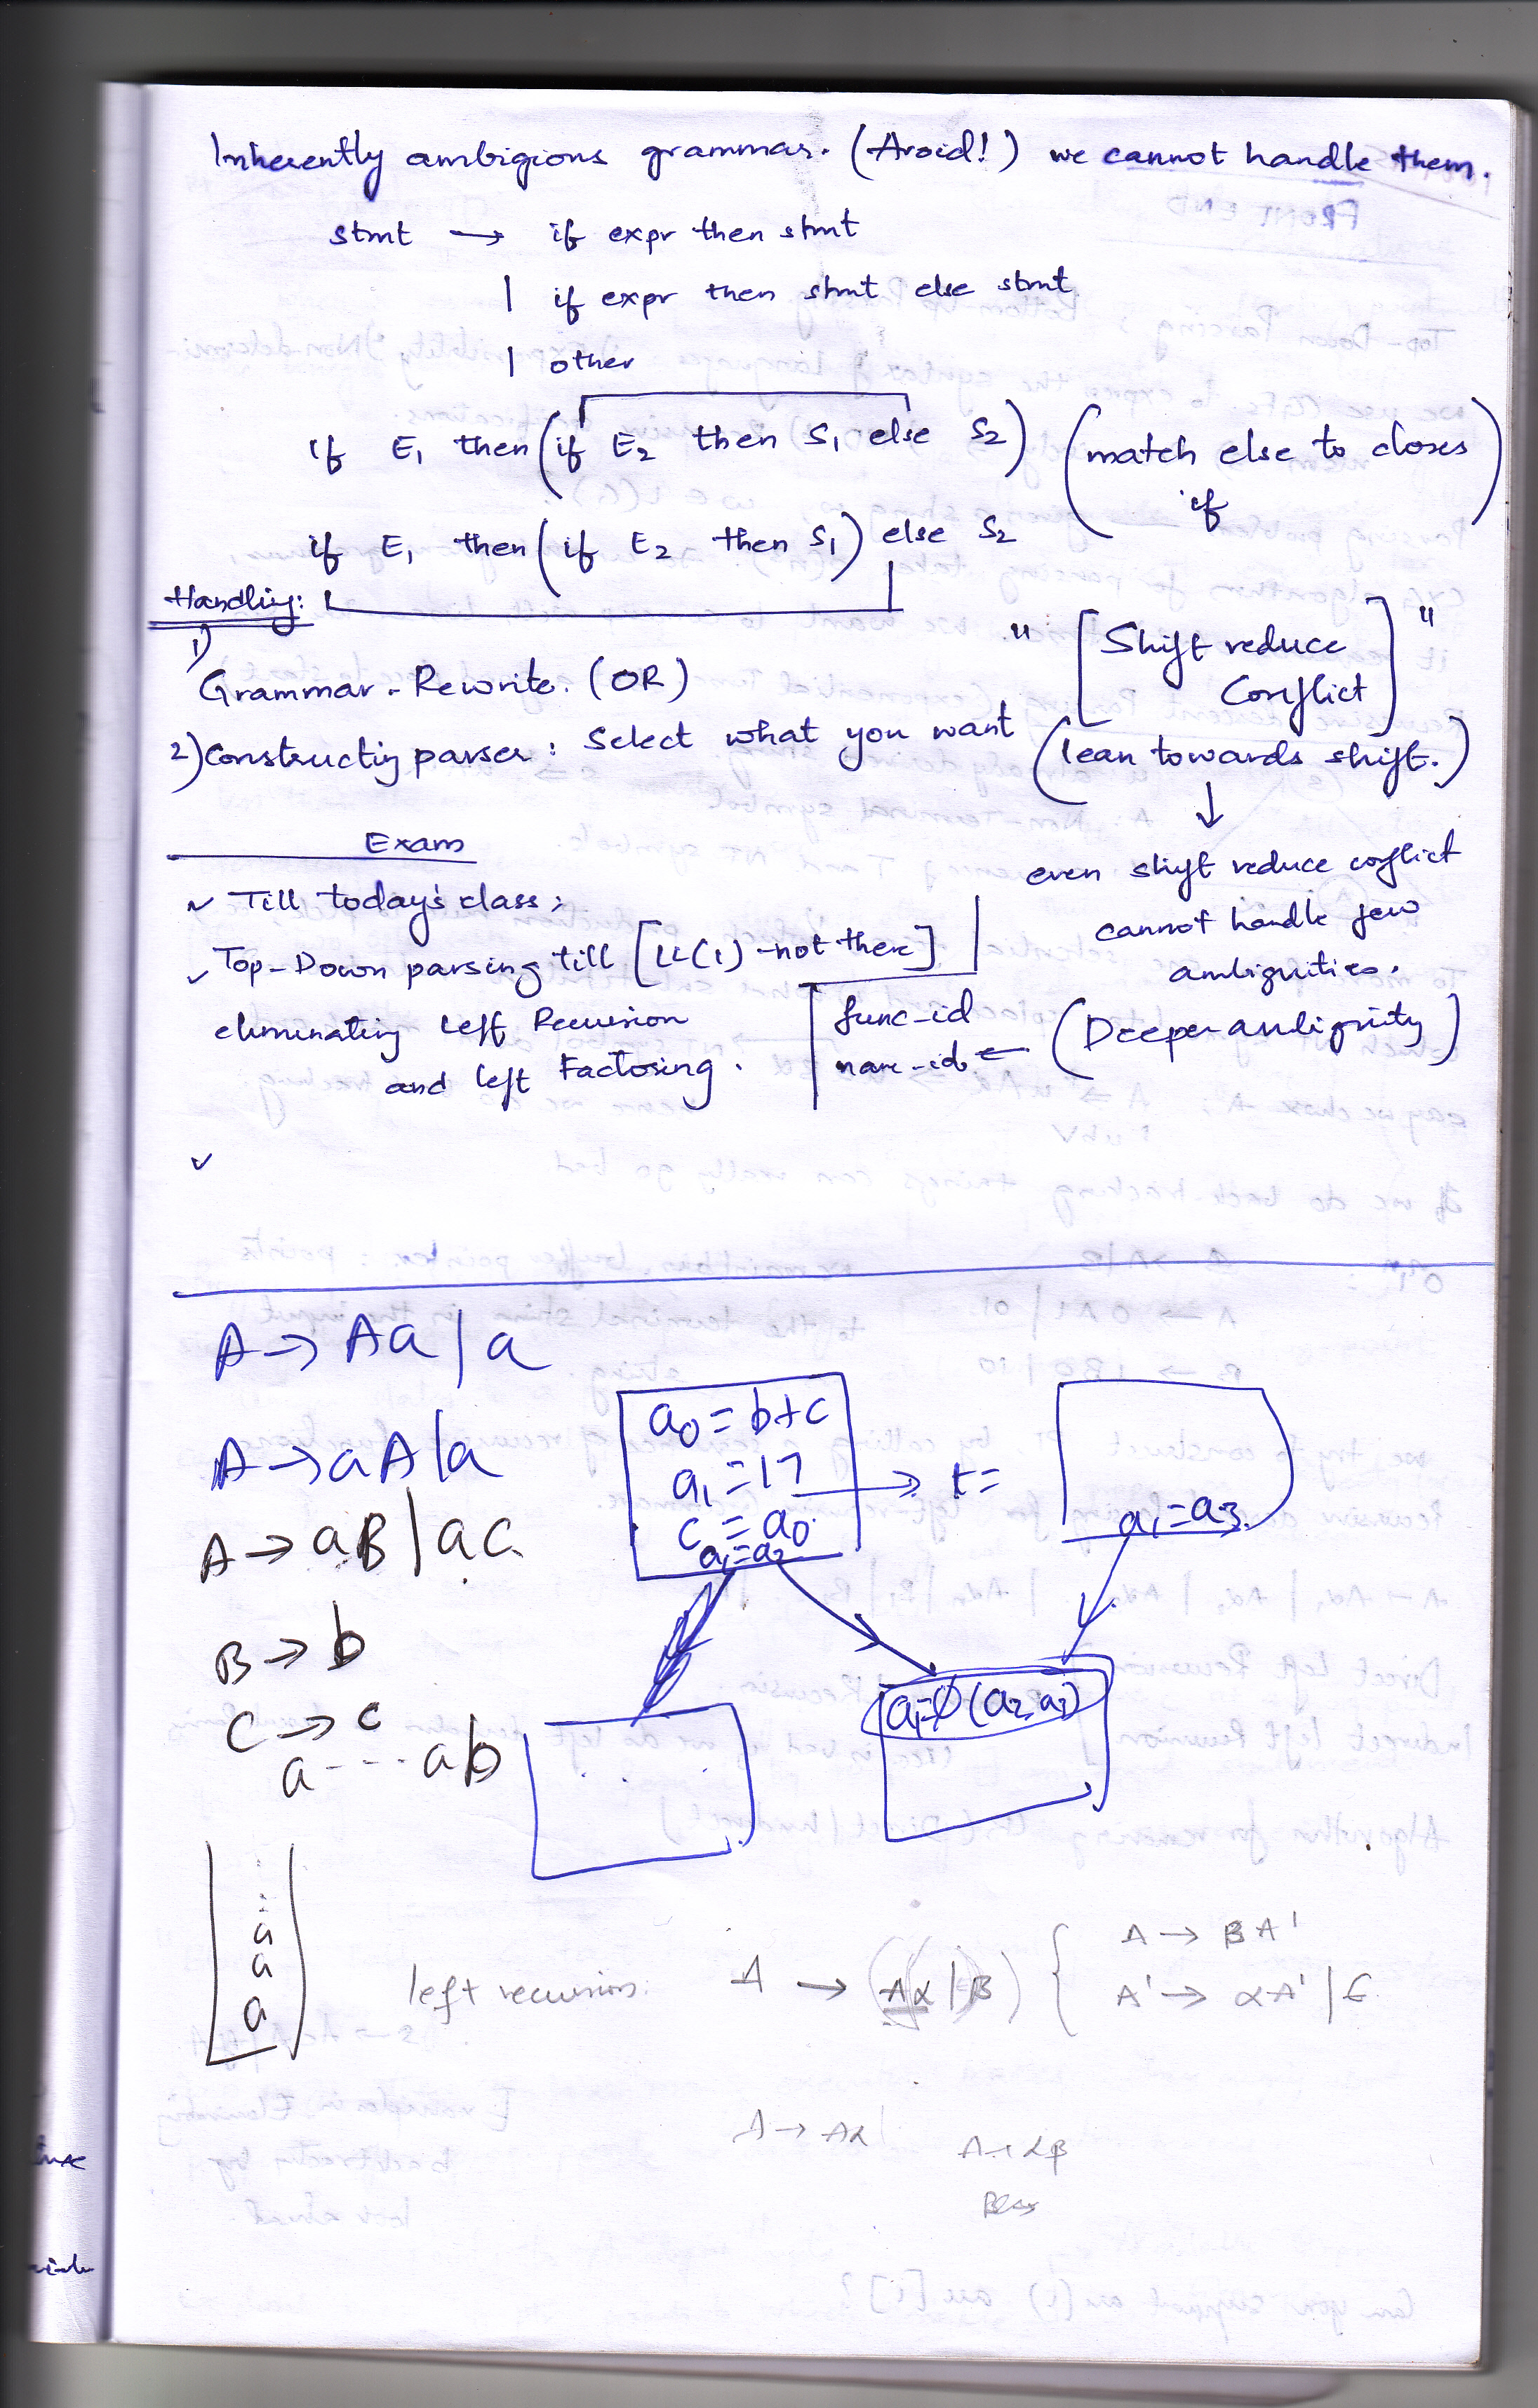 Inherently ambigious grammar. (Avoid!) we cannot handle them.
stmt → if expr then stmt
| if expr then stmt else stmt
| other
if E₁ then (if E₂ then S₁ else S₂) (match else to closes
if
if E₁ then (if E₂ then S₁) else S₂
Handling:
1)
Grammar-Rewrite. (OR)
" [Shift reduce
Conflict] "
2) Constructing parser: Select what you want (lean towards shift.)
↓
even shift reduce conflict
cannot handle few
ambiguities.
(Deeper ambiguity)
Exam
Till today's class;
Top-Down parsing till [LL(1) - not there]
eliminating Left Recursion
and left Factoring.
func-id
name-id ←
A → Aa | a
A → aA | a
A → aB | aC
B → b
C → c
a - - - ab
a₀ = b+c
a₁ = 17 → t =
c = a₀
a₁ = a₂
a₁ = a₃
a₁ = ϕ(a₂, a₃)
a
a
a
left recursion: A → (Aα | β) { A → βA'
A' → αA' | ϵ
A → Aα
A → αβ